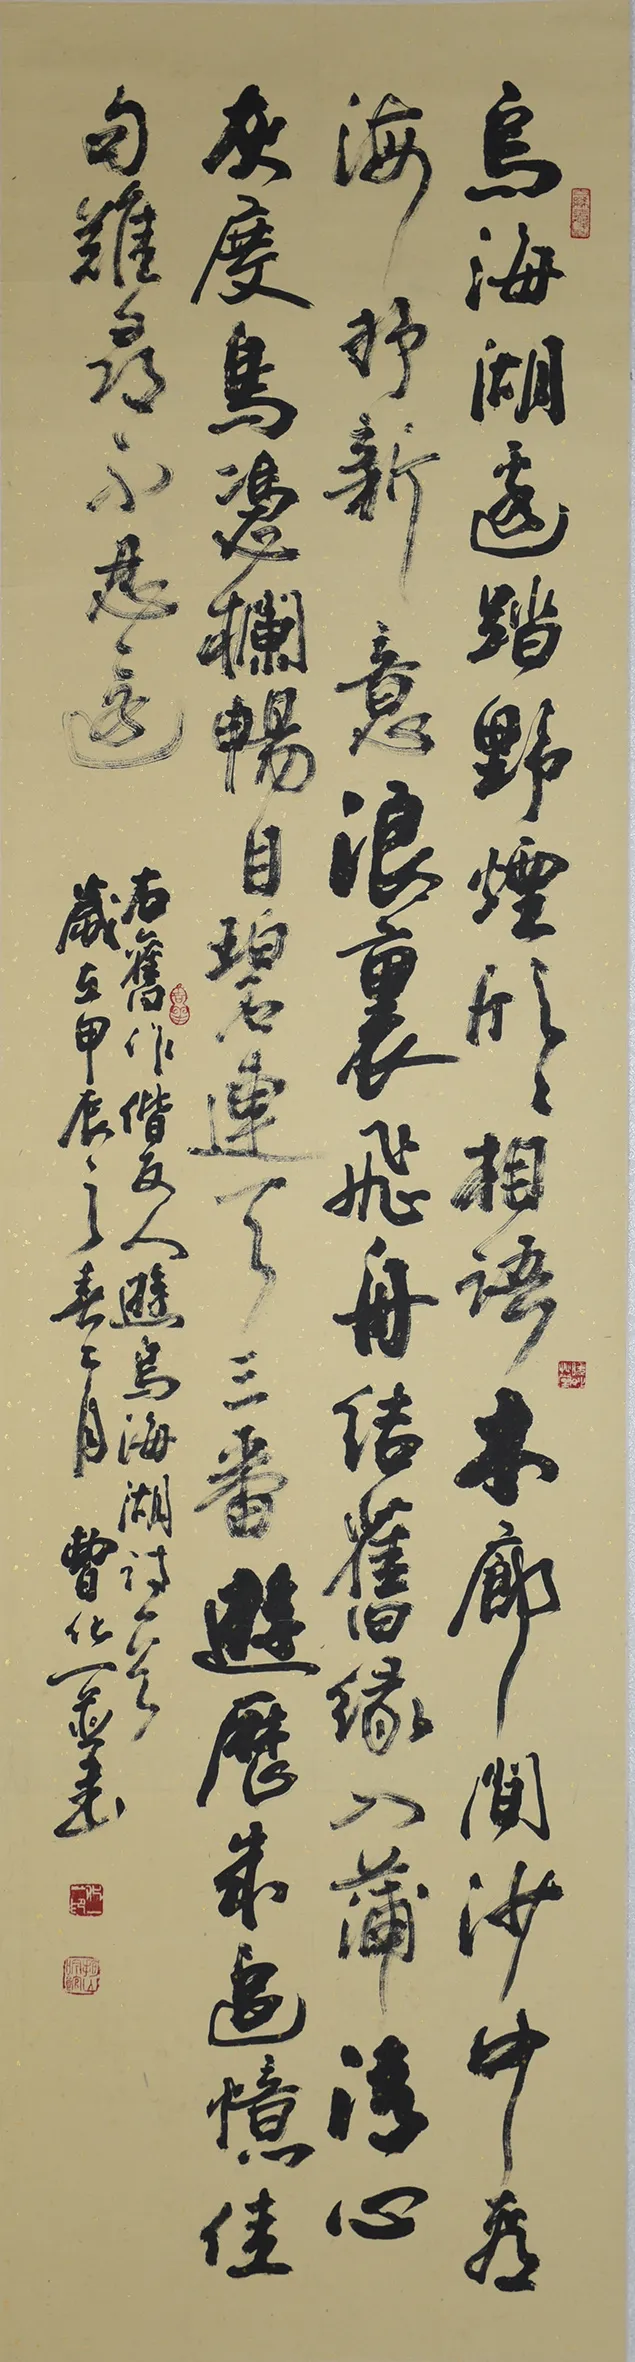 烏海湖邊踏野煙欣〻相語木廊間沙中看
海抒新意浪裏飛舟結舊緣入蒲清心
灰度鳥憑欄暢目碧連天三番遊歷成追憶佳
句難尋不忍還
右舊作偕友人遊烏海湖詩一首
歲在甲辰之春二月 曹化一並書